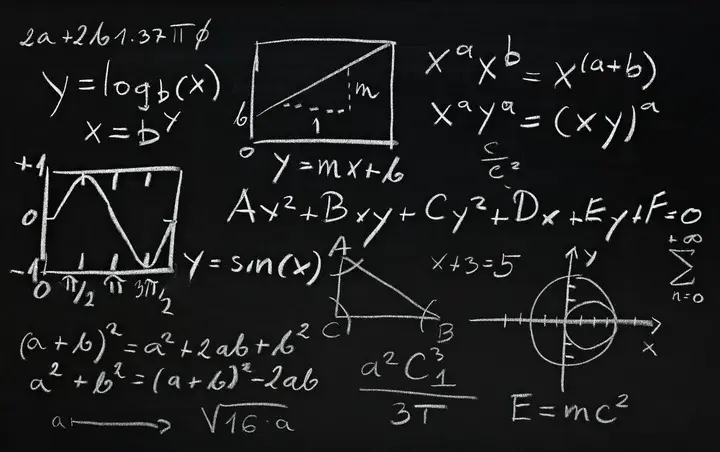 2a+2b1.37πφ
y=log_b(x)
x=b^y
b
m
1
0
y=mx+b
x^a x^b=x^(a+b)
x^a y^a=(xy)^a
c/c^2
+1
0
-1
0 π/2 π 3π/2
y=sin(x)
Ax²+Bxy+Cy²+Dx+Ey+F=0
A
C
B
x+3=5
y
x
+∞
∑
n=0
(a+b)²=a²+2ab+b²
a²+b²=(a+b)²-2ab
a
√16·a
a²C₁³
3T
E=mc²